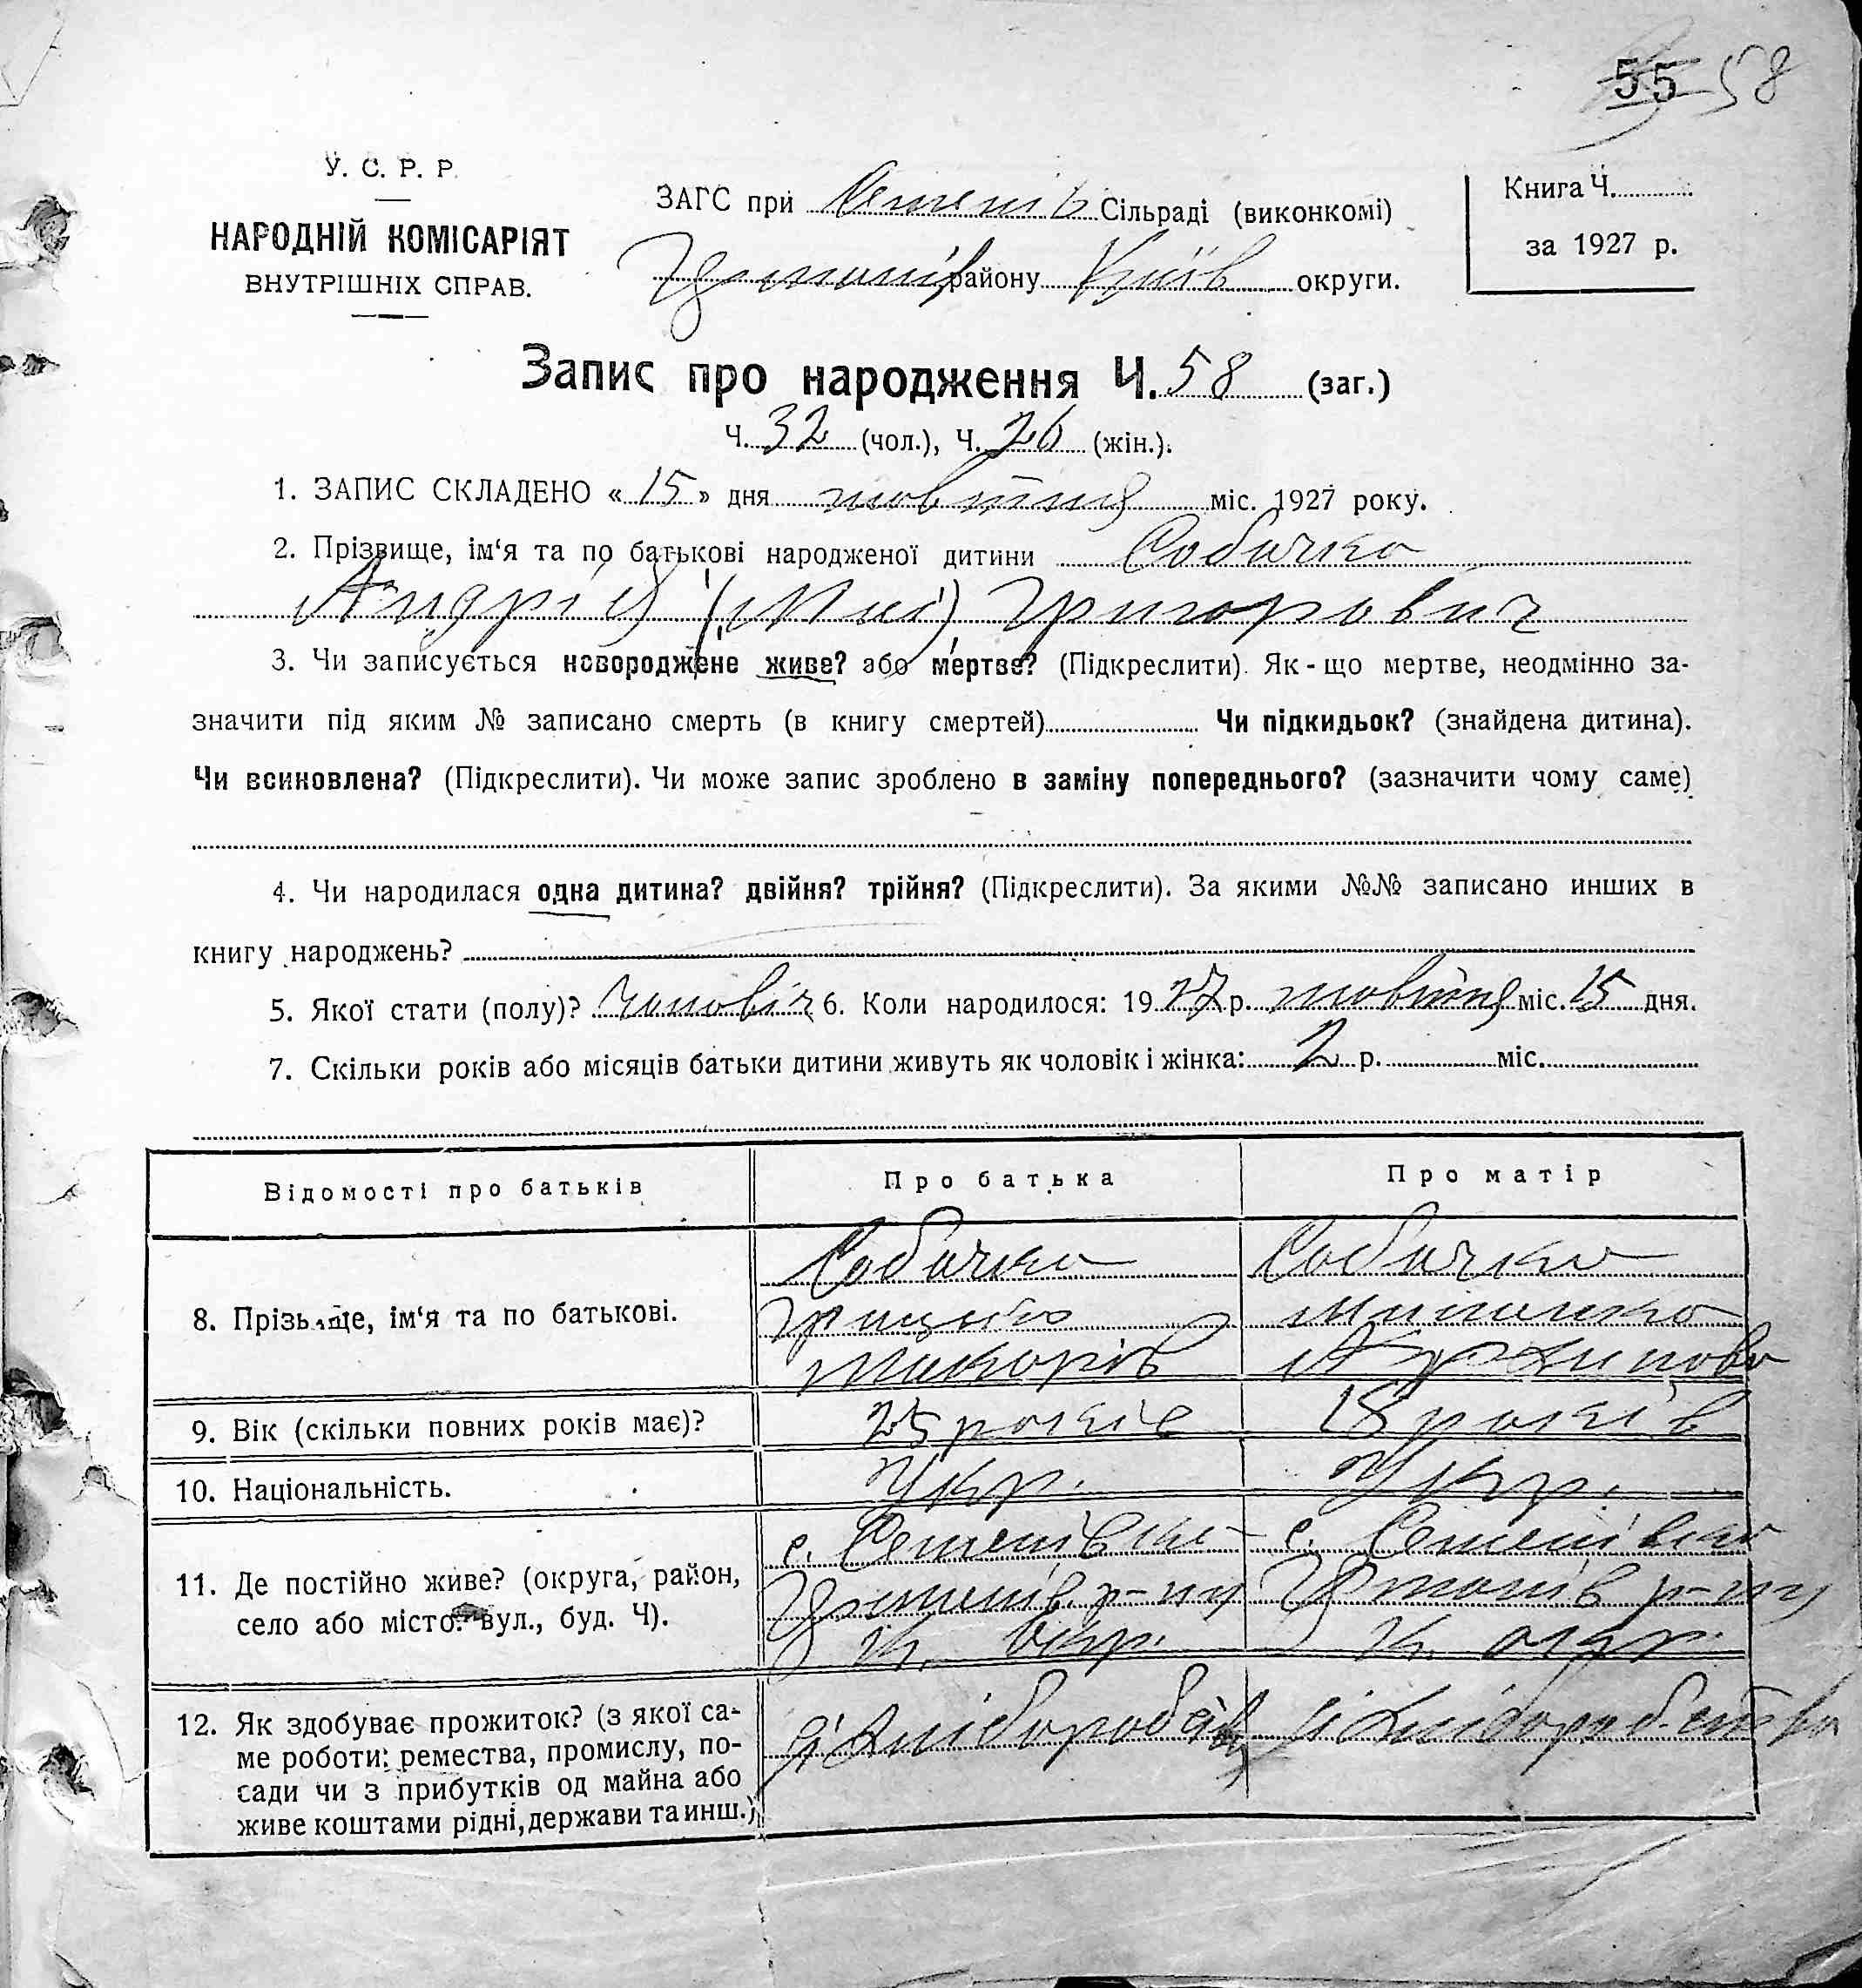 55 58
У. С. Р. Р.
НАРОДНІЙ КОМІСАРІЯТ
ВНУТРІШНІХ СПРАВ.
ЗАГС при Семенів Сільраді (виконкомі)
району Київ округи.
Книга Ч.
за 1927 р.
Запис про народження Ч. 58 (заг.)
Ч. 32 (чол.), Ч. 26 (жін.).
1. ЗАПИС СКЛАДЕНО « 15 » дня жовтня міс. 1927 року.
2. Прізвище, ім'я та по батькові народженої дитини Собачко
Андрій Григорович
3. Чи записується новороджене живе? або мертве? (Підкреслити). Як-що мертве, неодмінно за-
значити під яким № записано смерть (в книгу смертей) Чи підкидьок? (знайдена дитина).
Чи всиновлена? (Підкреслити). Чи може запис зроблено в заміну попереднього? (зазначити чому саме)
4. Чи народилася одна дитина? двійня? трійня? (Підкреслити). За якими №№ записано инших в
книгу народжень?
5. Якої стати (полу)? чоловіч 6. Коли народилося: 1927 р. жовтня міс. 15 дня.
7. Скільки років або місяців батьки дитини живуть як чоловік і жінка: 2 р. міс.
Відомості про батьків
Про батька
Про матір
8. Прізвище, ім'я та по батькові.
Собачко
Грицько
Макорів
Собачко
Архипова
9. Вік (скільки повних років має)?
25 років
18 років
10. Національність.
Укр.
Укр.
11. Де постійно живе? (округа, район,
село або місто: вул., буд. Ч).
с. Семенівка
р-ну
К. окр.
с. Семенівка
р-ну
К. окр.
12. Як здобуває прожиток? (з якої са-
ме роботи: ремества, промислу, по-
сади чи з прибутків од майна або
живе коштами рідні, держави та инш.)
з хліборобств
з хліборобства